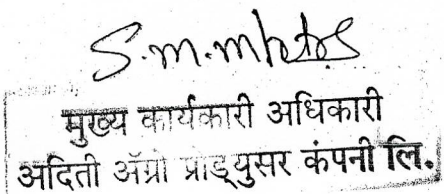 S.M.Mhetre
मुख्य कार्यकारी अधिकारी
अदिती ॲग्रो प्राड्युसर कंपनी लि.